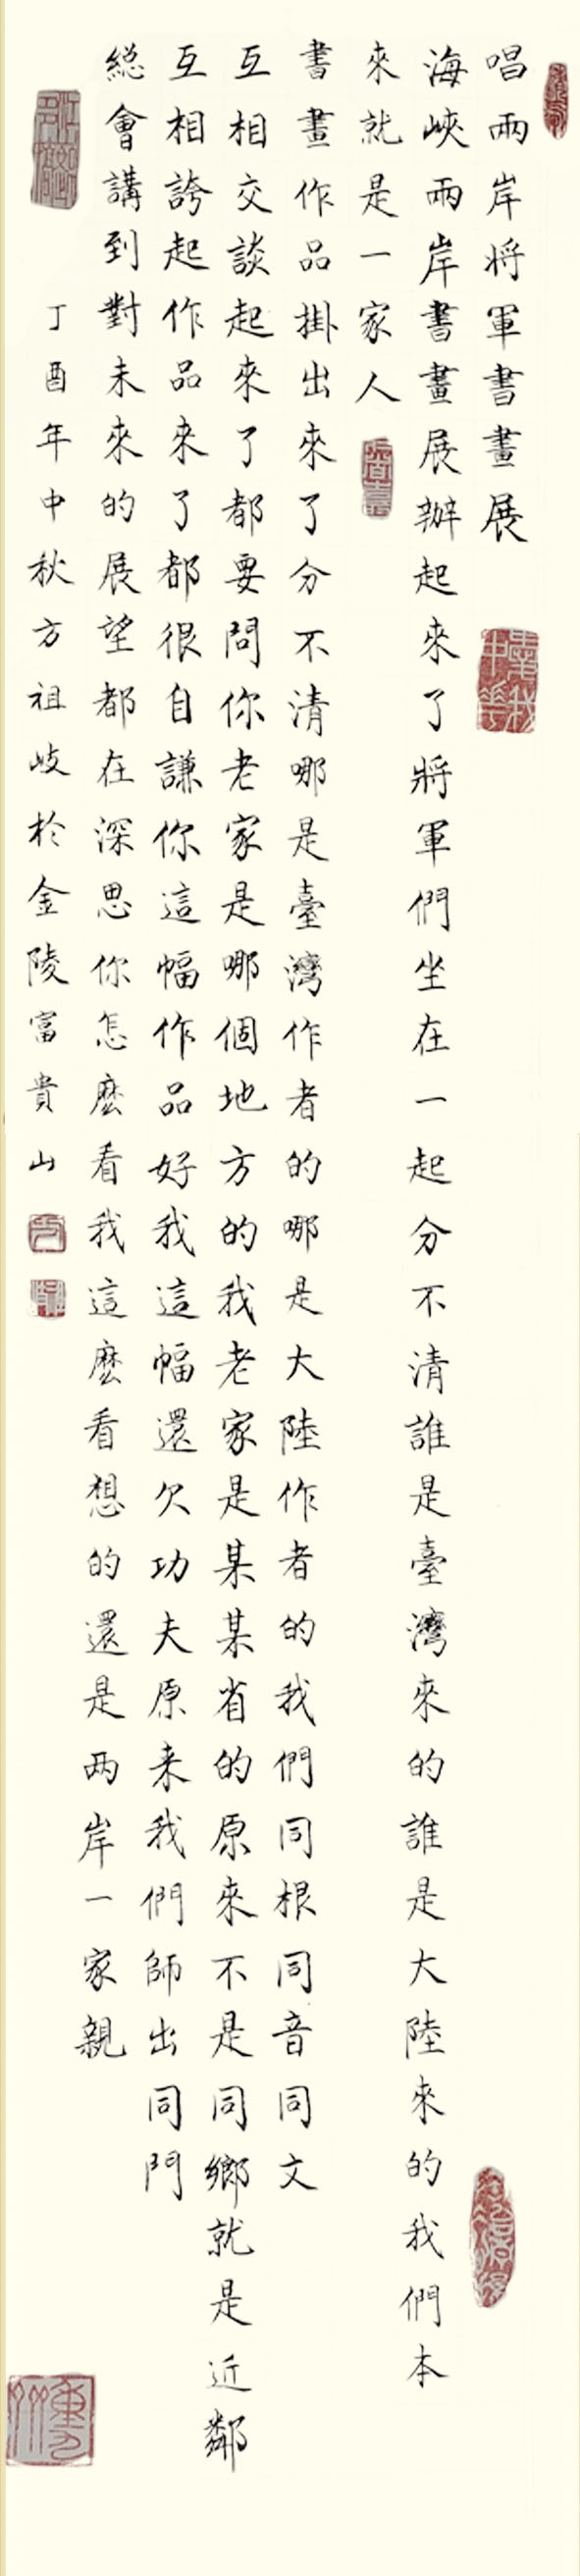 唱兩岸將軍書畫展
海峽兩岸書畫展辦起來了將軍們坐在一起分不清誰是臺灣來的誰是大陸來的我們本
來就是一家人
書畫作品掛出來了分不清哪是臺灣作者的哪是大陸作者的我們同根同音同文
互相交談起來了都要問你老家是哪個地方的我老家是某某省的原來不是同鄉就是近鄰
互相誇起作品來了都很自謙你這幅作品好我這幅還欠功夫原来我們師出同門
総會講到對未來的展望都在深思你怎麼看我這麼看想的還是两岸一家親
丁酉年中秋方祖岐於金陵富貴山